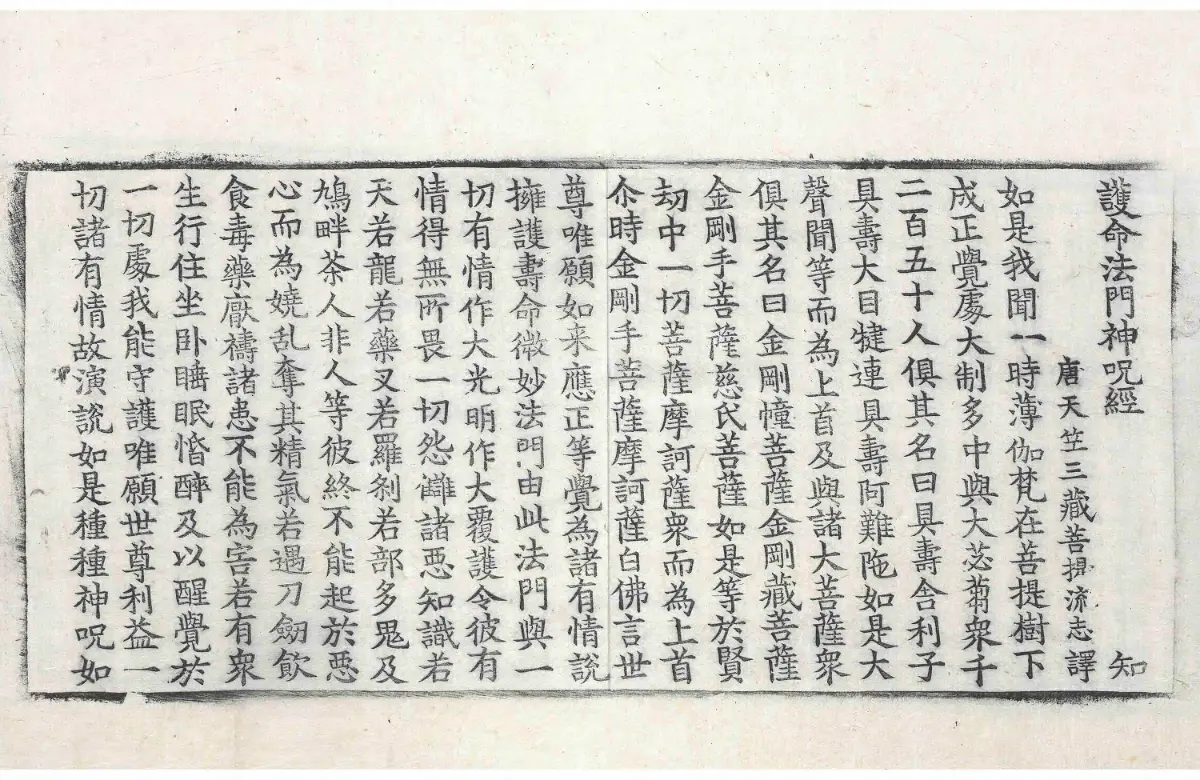 護命法門神呪經 知
唐天竺三藏菩提流志譯
如是我聞一時薄伽梵在菩提樹下
成正覺處大制多中與大苾蒭衆千
二百五十人俱其名曰具壽舍利子
具壽大目犍連具壽阿難陁如是大
聲聞等而為上首及與諸大菩薩衆
俱其名曰金剛幢菩薩金剛藏菩薩
金剛手菩薩慈氏菩薩如是等於賢
劫中一切菩薩摩訶薩衆而為上首
尒時金剛手菩薩摩訶薩白佛言世
尊唯願如来應正等覺為諸有情說
擁護壽命微妙法門由此法門與一
切有情作大光明作大覆護令彼有
情得無所畏一切怨讎諸惡知識若
天若龍若藥叉若羅剎若部多鬼及
鳩畔茶人非人等彼終不能起於惡
心而為嬈乱奪其精氣若遇刀劒飲
食毒藥厭禱諸患不能為害若有衆
生行住坐卧睡眠惛醉及以醒覺於
一切處我能守護唯願世尊利益一
切諸有情故演說如是種種神呪如